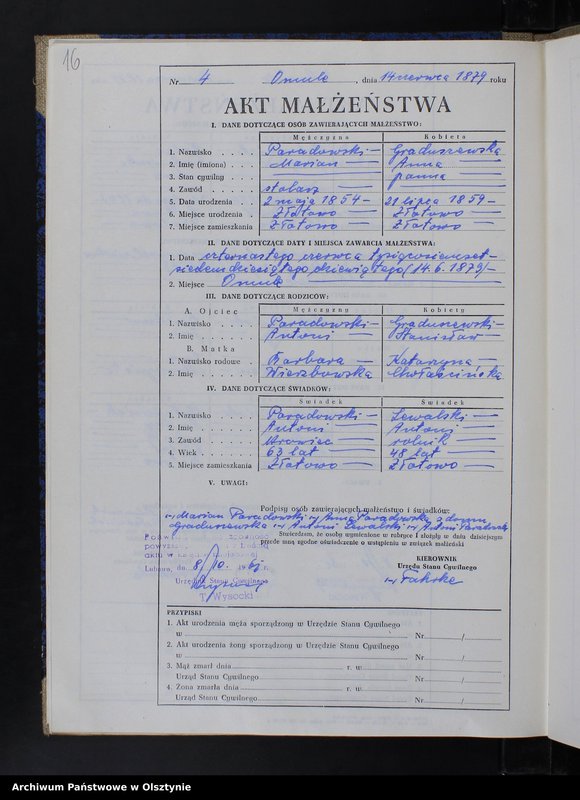 16
Nr 4 Omule, dnia 14 czerwca 1879 roku
AKT MAŁŻEŃSTWA
I. DANE DOTYCZĄCE OSÓB ZAWIERAJĄCYCH MAŁŻEŃSTWO:
Mężczyzna Kobieta
1. Nazwisko Paradowski Graduszewska
2. Imię (imiona) Marian Anna
3. Stan cywilny panna
4. Zawód stolarz
5. Data urodzenia 2 maja 1854 21 lipca 1859
6. Miejsce urodzenia Złotowo Złotowo
7. Miejsce zamieszkania Złotowo Złotowo
II. DANE DOTYCZĄCE DATY I MIEJSCA ZAWARCIA MAŁŻEŃSTWA:
1. Data czternastego czerwca tysiącosiemset-
siedemdziesiątego dziewiątego (14.6.1879)
2. Miejsce Omule
III. DANE DOTYCZĄCE RODZICÓW:
Mężczyzny Kobiety
A. Ojciec
1. Nazwisko Paradowski Graduszewski
2. Imię Antoni Stanisław
B. Matka
1. Nazwisko rodowe Barbara Katarzyna
2. Imię Wierzbowska Chwaścińska
IV. DANE DOTYCZĄCE ŚWIADKÓW:
Świadek Świadek
1. Nazwisko Paradowski Lewalski
2. Imię Antoni Antoni
3. Zawód rolnik
4. Wiek 63 lat 48 lat
5. Miejsce zamieszkania Złotowo Złotowo
V. UWAGI:
Podpisy osób zawierających małżeństwo i świadków:
Marian Paradowski Anna Paradowska z domu
Graduszewska Antoni Lewalski Antoni Paradowski
Stwierdzam, że osoby wymienione w rubryce I złożyły w dniu dzisiejszym
przede mną zgodne oświadczenie o wstąpieniu w związek małżeński
KIEROWNIK
Urzędu Stanu Cywilnego
Fahrke
Lubawa, dn. 8/10. 196
Urzędu Stanu Cywilnego
T. Wysocki
PRZYPISKI
1. Akt urodzenia męża sporządzony w Urzędzie Stanu Cywilnego
w Nr /
2. Akt urodzenia żony sporządzony w Urzędzie Stanu Cywilnego
w Nr /
3. Mąż zmarł dnia r. w
Urząd Stanu Cywilnego Nr /
4. Żona zmarła dnia r. w
Urząd Stanu Cywilnego Nr /
Archiwum Państwowe w Olsztynie